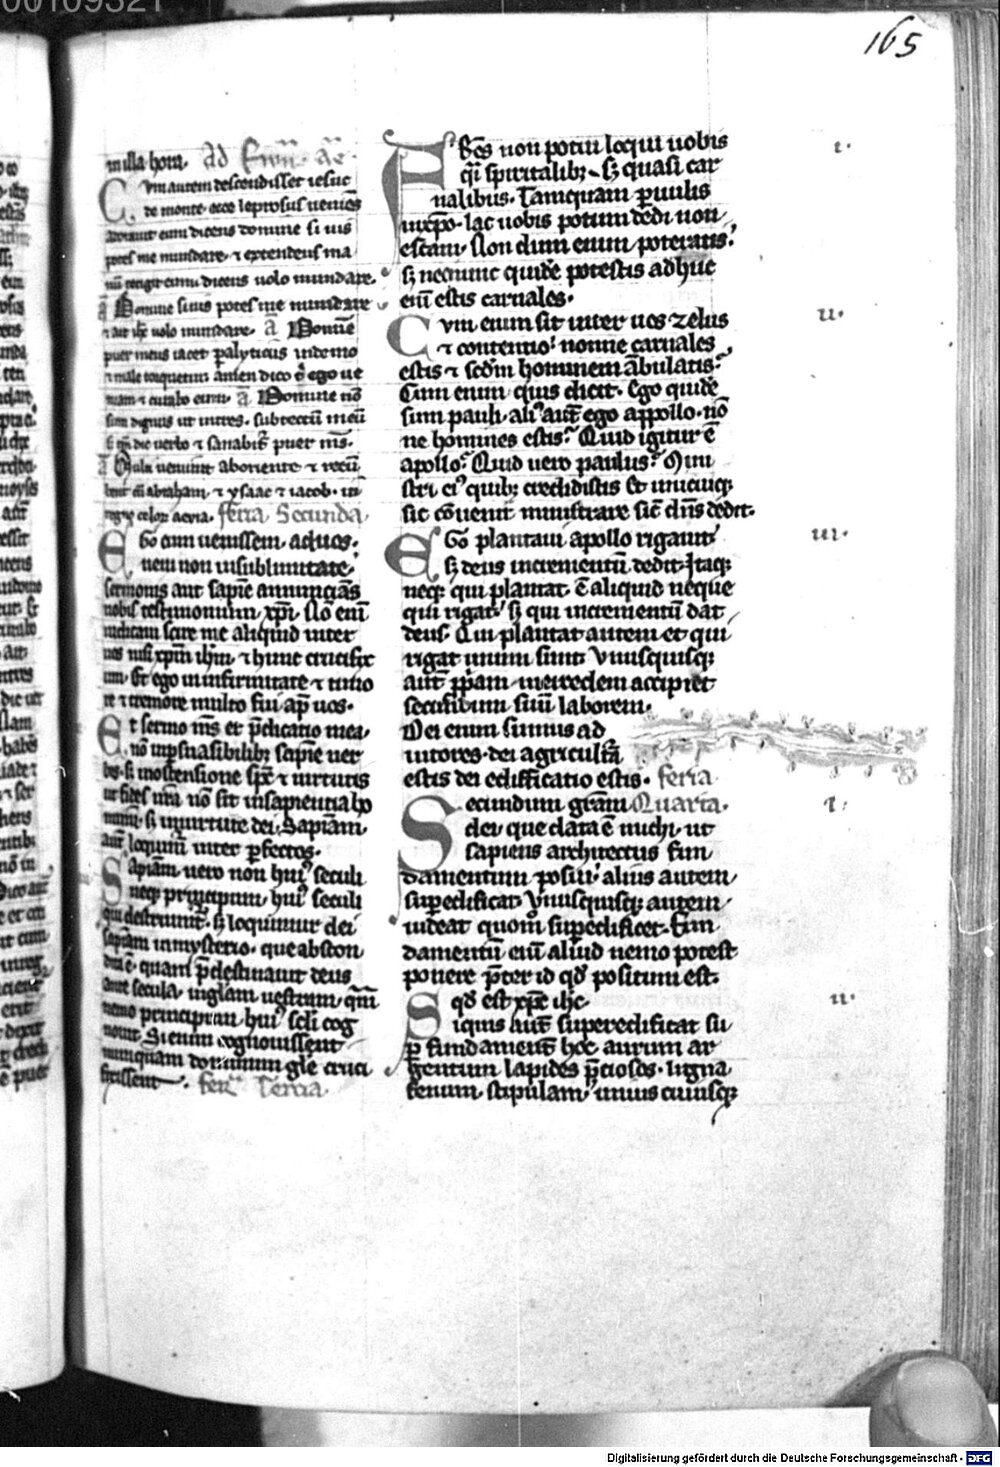 165
in illa hora. ad
Cum autem descendisset iesus
de monte. ecce leprosus veniēs
dicens domine si vis
potes me mundare. ⁊ extendens ma
dicens uolo mundare.
Domine si uis potes me mundare
uolo mundare. ā Domine
puer meus iacet paralyticus in domo
⁊ male torquetur. amen dico ego ue
niam ⁊ curabo eum. ā Domine nō
sum dignus ut intres. sub tectū meū
dic uerbo ⁊ sanabit̄ puer m̄s.
uenient ab oriente ⁊
abraham. ⁊ ysaac ⁊ iacob. in
feria Secunda.
EGo cum uenissem. ad uos.
ueni non in sublimitate.
sermonis aut sapīe annuncians
uobis testimonium. xp̄i. Nō enī
iudicaui scire me aliquid inter
uos nisi xp̄m ih̄m. ⁊ hunc crucifix
um. Et ego in infirmitate ⁊ timo
re ⁊ tremore multo fui ap̄ uos.
Et sermo m̄s et p̄dicatio mea.
nō in psuasibilibꝫ sapīe uer
bis. sꝫ in ostensione sp̄c ⁊ uirtutis
ut fides ur̄a nō sit in sapientia ho
minū. sꝫ in uirtute dei. Sapiām.
aut̄ loqumī inter ꝑfectos.
Sapiām uero non huiꝰ seculi
neqꝫ principum. huiꝰ seculi
qui destruunt̄. sꝫ loquimur dei
sapiām in mysterio. que abscon
dita ē. quam p̄destinauit deus
ante secula. in glām uestram. quā
nemo principum huiꝰ scli cog
nouit. Si enim cognouissent
numquam dominum glē cruci
fixissent. fer̄ Tercia.
FRēs non potui loqui uobis
i.
q̄i spiritalibꝫ. Sꝫ quasi car
nalibus. Tamquam ꝑuulis
in xp̄o. lac uobis potum dedi non
escam. Non dum enim poteratis.
sꝫ nec nunc quidē potestis adhuc
enī estis carnales.
Cum enim sit inter uos zelus
ii.
⁊ contentio. nonne carnales
estis ⁊ scdm̄ hominem ābulatis.
Cum enim quis dicit. Ego quidē
sum pauli. aliꝰ aut̄ ego appollo. nō
ne homines estis. Quid igitur ē
apollo. Quid uero paulus. Mini
stri eiꝰ quibꝫ credidistis Et unicuiqꝫ
sic cōuenit ministrare sic̄ dn̄s dedit.
EGo plantaui apollo rigauit
iii.
sꝫ deus incrementū dedit. Itaqꝫ
neqꝫ qui plantat. ē aliquid neque
qui rigat. sꝫ qui incrementū dat
deus. Qui plantat autem et qui
rigat unum sunt. Vnusquisqꝫ
aut̄ ꝓpam mercedem accipiet
secundum suū laborem.
Dei enim sumus ad
iutores. dei agricultā
estis dei edifficatio estis. feria
Secundum grām Quarta.
i.
dei. que data ē michi. ut
sapiens architectus fun
damentum posui. alius autem
supedificat. Vnusquisqꝫ autem
uideat quom̄ supedificet. Fun
damentū enī aliud nemo potest
ponere p̄ter id qd̄ positum est.
qd̄ est xp̄c ih̄c
ii.
Siquis aut̄ superedificat su
ꝑ fundament̄ hoc aurum ar
gentum lapides p̄ciosos. ligna
fenum. stipulam. unius cuiusqꝫ
Digitalisierung gefördert durch die Deutsche Forschungsgemeinschaft - DFG